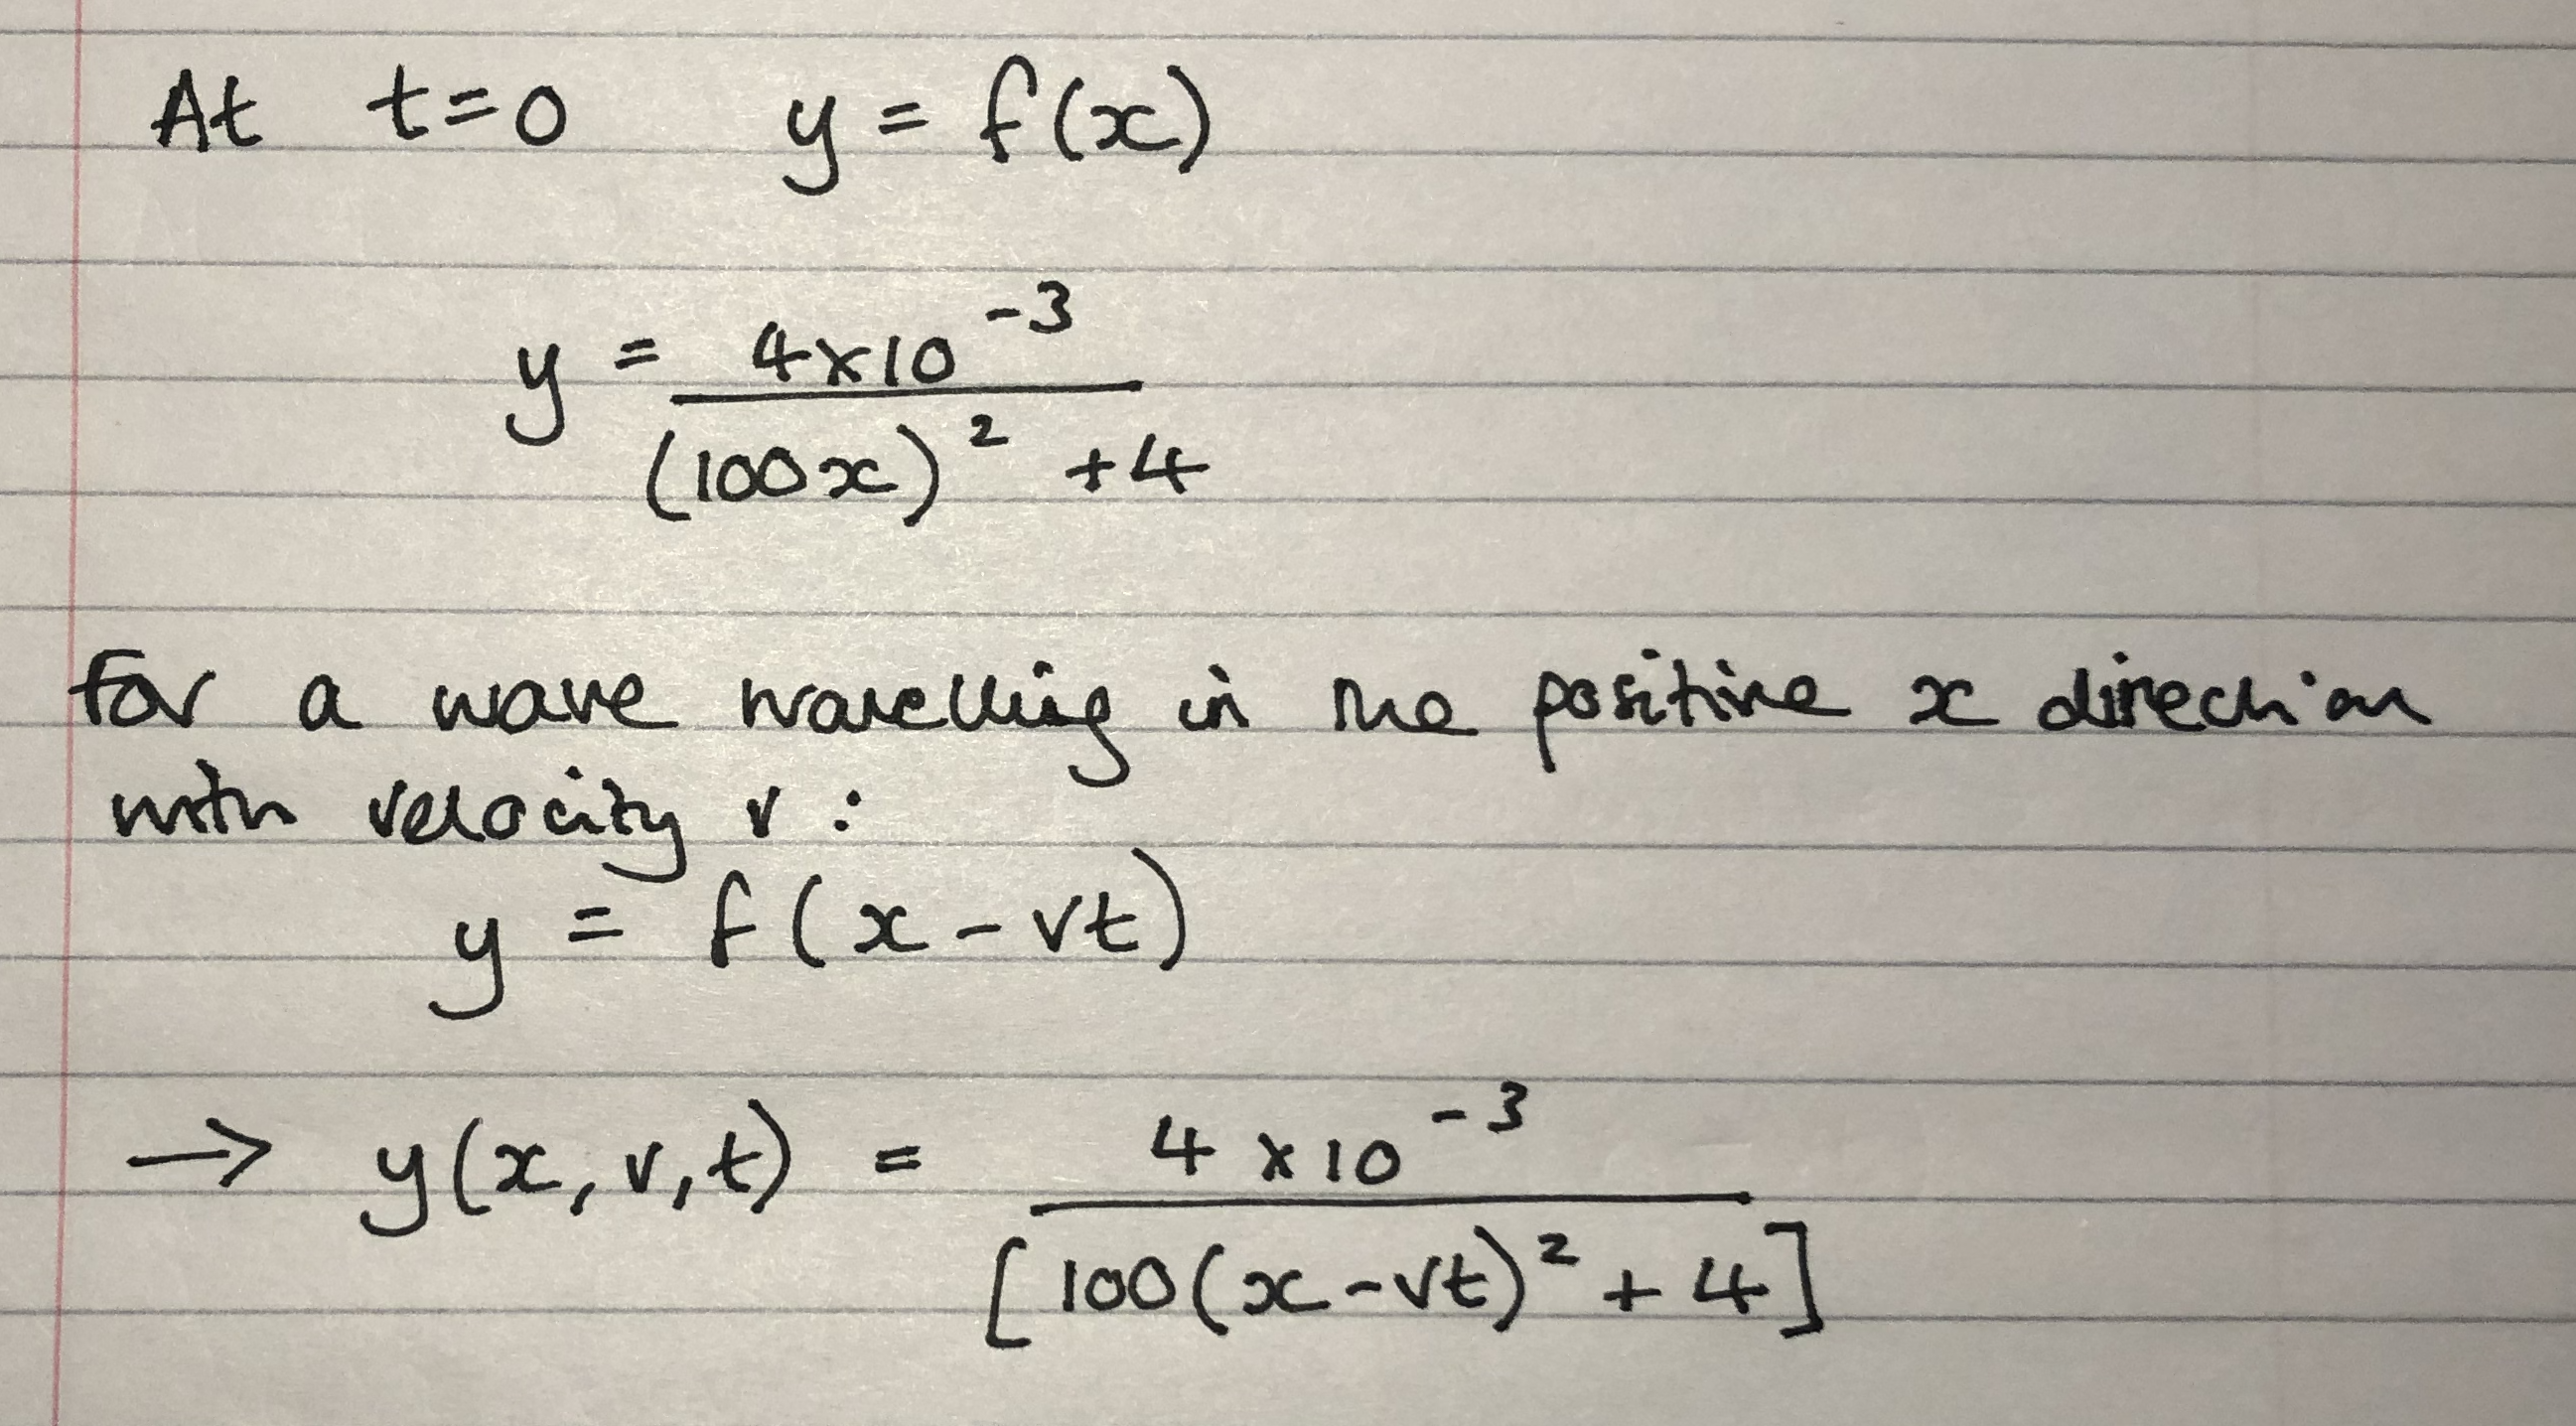 At t=0 y = f(x)
y = 4×10⁻³ / (100x)² + 4
for a wave travelling in the positive x direction
with velocity v :
y = f(x - vt)
→ y(x, v, t) = 4 × 10⁻³ / [100(x - vt)² + 4]